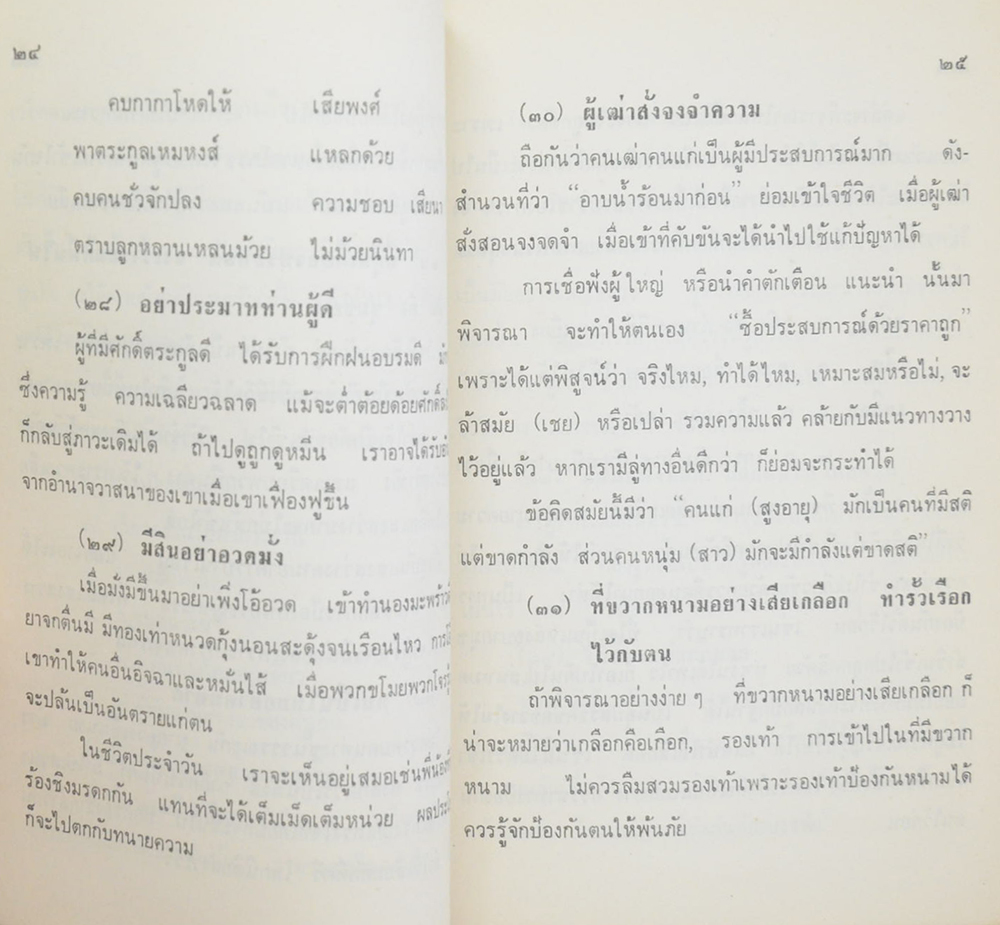 ๒๔
คบกากาโหดให้ เสียพงศ์
พาตระกูลเหมหงส์ แหลกด้วย
คบคนชั่วจักปลง ความชอบ เสียนา
ตราบลูกหลานเหลนม้วย ไม่ม้วยนินทา
(๒๘) อย่าประมาทท่านผู้ดี
ผู้ที่มีศักดิ์ตระกูลดี ได้รับการฝึกฝนอบรมดี
ซึ่งความรู้ ความเฉลียวฉลาด แม้จะต่ำต้อยด้อยศักดิ์ลง
ก็กลับสู่ภาวะเดิมได้ ถ้าไปดูถูกดูหมื่น เราอาจได้รับ
จากอำนาจวาสนาของเขาเมื่อเขาเฟื่องฟูขึ้น
(๒๙) มีสินอย่าอวดมั่ง
เมื่อมั่งมีขึ้นมาอย่าเพิ่งโอ้อวด เข้าทำนองมะพร้าว
ยาจกตื่นมี มีทองเท่าหนวดกุ้งนอนสะดุ้งจนเรือนไหว
เขาทำให้คนอื่นอิจฉาและหมั่นไส้ เมื่อพวกขโมยพวกโจร
จะปล้นเป็นอันตรายแก่ตน
ในชีวิตประจำวัน เราจะเห็นอยู่เสมอเช่นพี่น้อง
ร้องชิงมรดกกัน แทนที่จะได้เต็มเม็ดเต็มหน่วย
ก็จะไปตกกับทนายความ
๒๕
(๓๐) ผู้เฒ่าสั่งจงจำความ
ถือกันว่าคนเฒ่าคนแก่เป็นผู้มีประสบการณ์มาก ดัง-
สำนวนที่ว่า “อาบน้ำร้อนมาก่อน” ย่อมเข้าใจชีวิต เมื่อผู้เฒ่า
สั่งสอนจงจดจำ เมื่อเข้าที่คับขันจะได้นำไปใช้แก้ปัญหาได้
การเชื่อฟังผู้ใหญ่ หรือนำคำตักเตือน แนะนำ นั้นมา
พิจารณา จะทำให้ตนเอง “ซื้อประสบการณ์ด้วยราคาถูก”
เพราะได้แต่พิสูจน์ว่า จริงไหม, ทำได้ไหม, เหมาะสมหรือไม่, จะ
ล้าสมัย (เชย) หรือเปล่า รวมความแล้ว คล้ายกับมีแนวทางวาง
ไว้อยู่แล้ว หากเรามีลู่ทางอื่นดีกว่า ก็ย่อมจะกระทำได้
ข้อคิดสมัยนี้มีว่า “คนแก่ (สูงอายุ) มักเป็นคนที่มีสติ
แต่ขาดกำลัง ส่วนคนหนุ่ม (สาว) มักจะมีกำลังแต่ขาดสติ”
(๓๑) ที่ขวากหนามอย่างเสียเกลือก ทำรั้วเรือก
ไว้กับตน
ถ้าพิจารณาอย่างง่าย ๆ ที่ขวากหนามอย่างเสียเกลือก ก็
น่าจะหมายว่าเกลือกคือเกือก, รองเท้า การเข้าไปในที่มีขวาก
หนาม ไม่ควรลืมสวมรองเท้าเพราะรองเท้าป้องกันหนามได้
ควรรู้จักป้องกันตนให้พ้นภัย